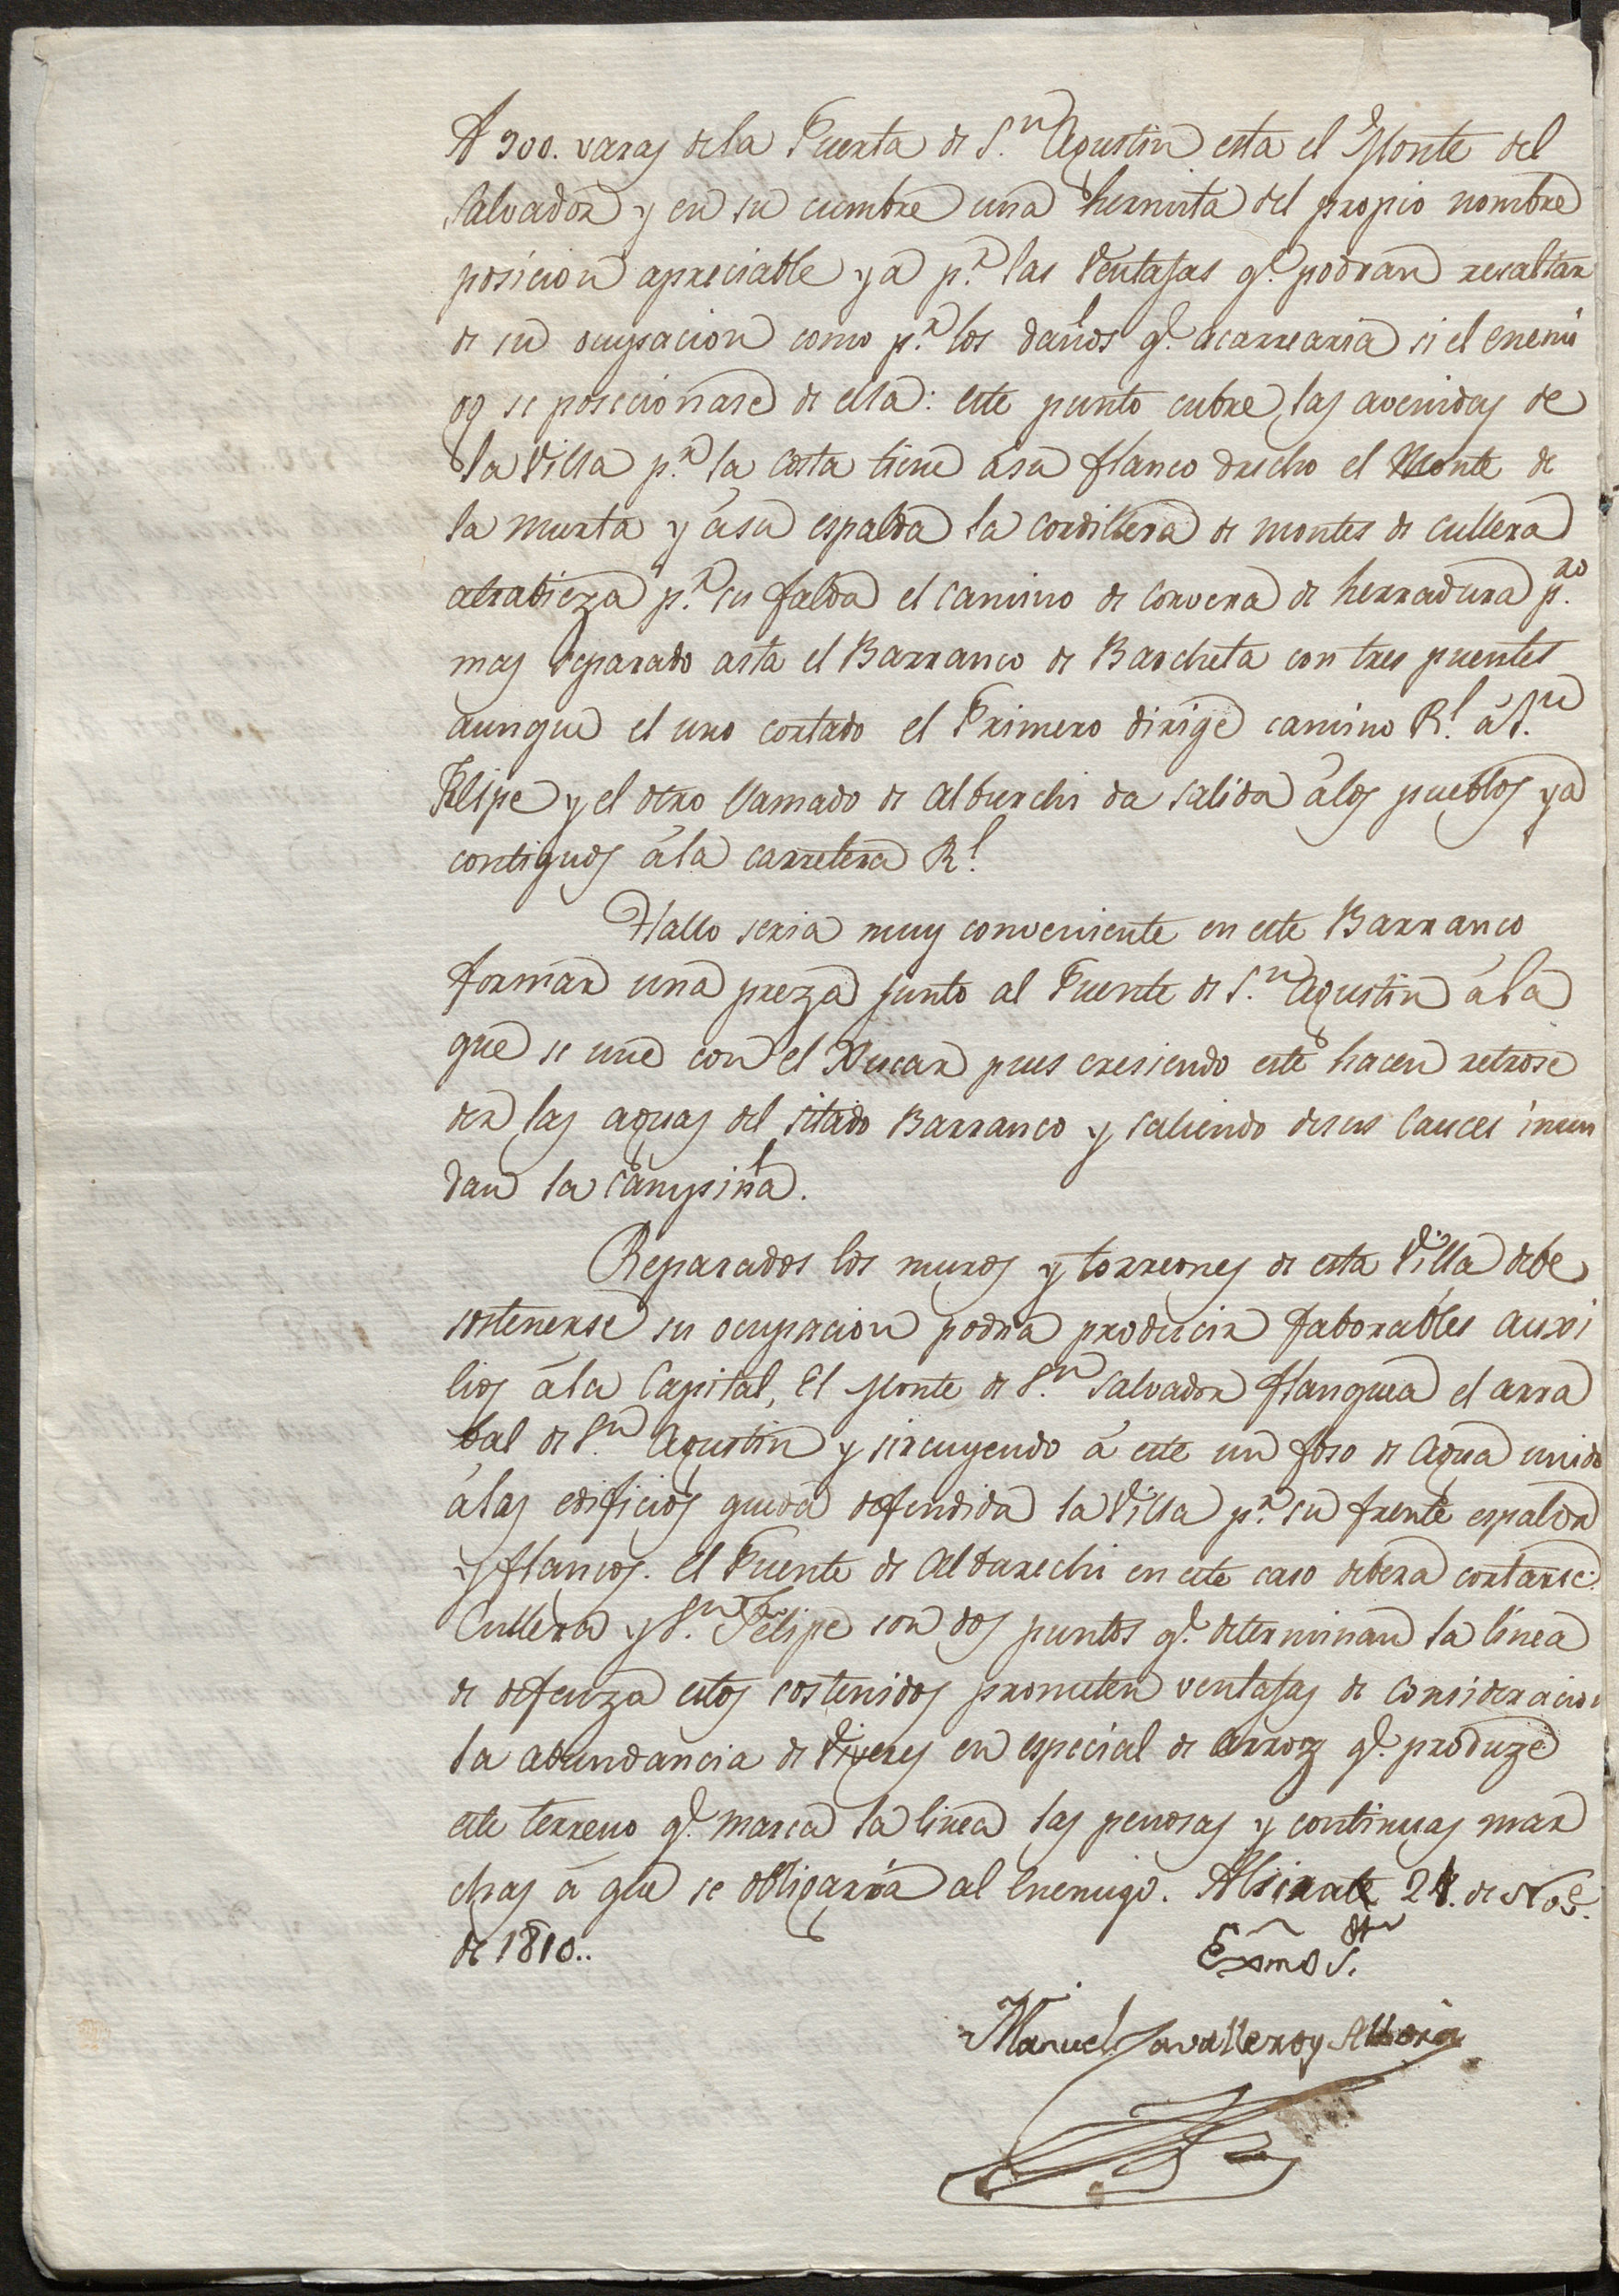 A 900. varas dela Puerta de S.n Agustin esta el Monte del
Salvador y en su cumbre una hermita del propio nombre
posicion apreciable ya p.r las Ventajas q.e podran resaltar
de su ocupacion como p.r los daños q.e acarrearia si el enemi
go se posecionase de ella: este punto cubre las avenidas de
la Villa p.r la costa tiene asu flanco drecho el Monte de
la Murta y ásu espalda la Cordillera de montes de Cullera
atrabieza p.r su falda el camino de Corvera de herradura p.ro
mas separado asta el Barranco de Barcheta con tres puentes
aunque el uno cortado el Primero dirige camino R.l á S.n
Felipe y el otro llamado de Alburchi da salida álos pueblos ya
contiguos ála carretera R.l
Hallo seria muy conveniente en este Barranco
formar una preza junto al Puente de S.n Agustin ála
que se une con el Xucar pues cresiendo este hacen retrose
der las aguas del sitado Barranco y saliendo desus Cauces inun
dan la Campiña.
Reparados los muros y torreones de esta Villa debe
sostenerse su ocupacion podra producir faborables auxi
lios ála Capital, El Monte de S.n Salvador flanquea el arra
bal de S.n Agustin y sircuyendo á este un foso de Agua unido
álas edificios queda defendida la Villa p.r su frente espalda
y flancos. El Puente de Albarechi en este caso debera cortarse.
Cullera y S.n Felipe son dos puntos q.e determinan la linea
de defenza estos sostenidos prometen ventajas de Consideracion
la abundancia de Viveres en especial de Arroz q.e produze
este terreno q.e marca la linea las penosas y continuas mar
chas á que se obligaria al Enemigo. Alsira 24. de Nov.e
de 1810..
Exmo S.or
Manuel Cavallero y Alboria